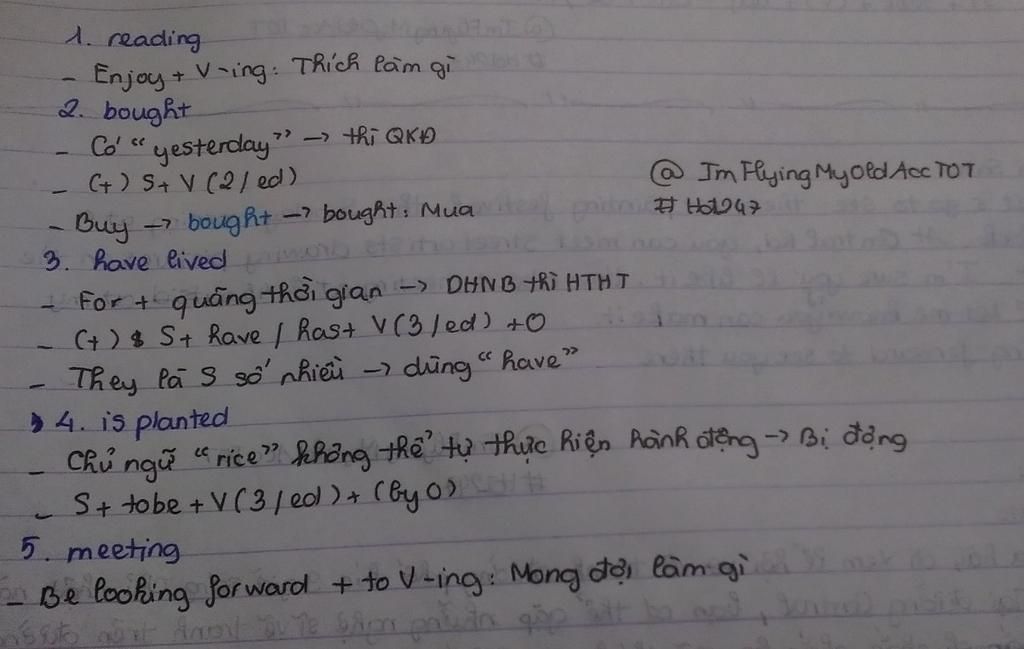 1. reading
- Enjoy + V-ing: Thích làm gì
2. bought
- Có "yesterday" → thì QKĐ
- (+) S + V (2/ed)
@ImFlyingMyOldAccTOT
- Buy → bought → bought: Mua
3. have lived
- For + quãng thời gian → DHNB thì HTHT
- (+) S + have / has + V(3/ed) + O
- They là S số nhiều → dùng "have"
4. is planted
- Chủ ngữ "rice" không thể tự thực hiện hành động → Bị động
- S + tobe + V(3/ed) + (by O)
5. meeting
- Be looking forward + to V-ing: Mong đợi làm gì